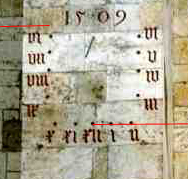 1509
vi vi
vii v
viii iv
ix iii
x xi xii i ii